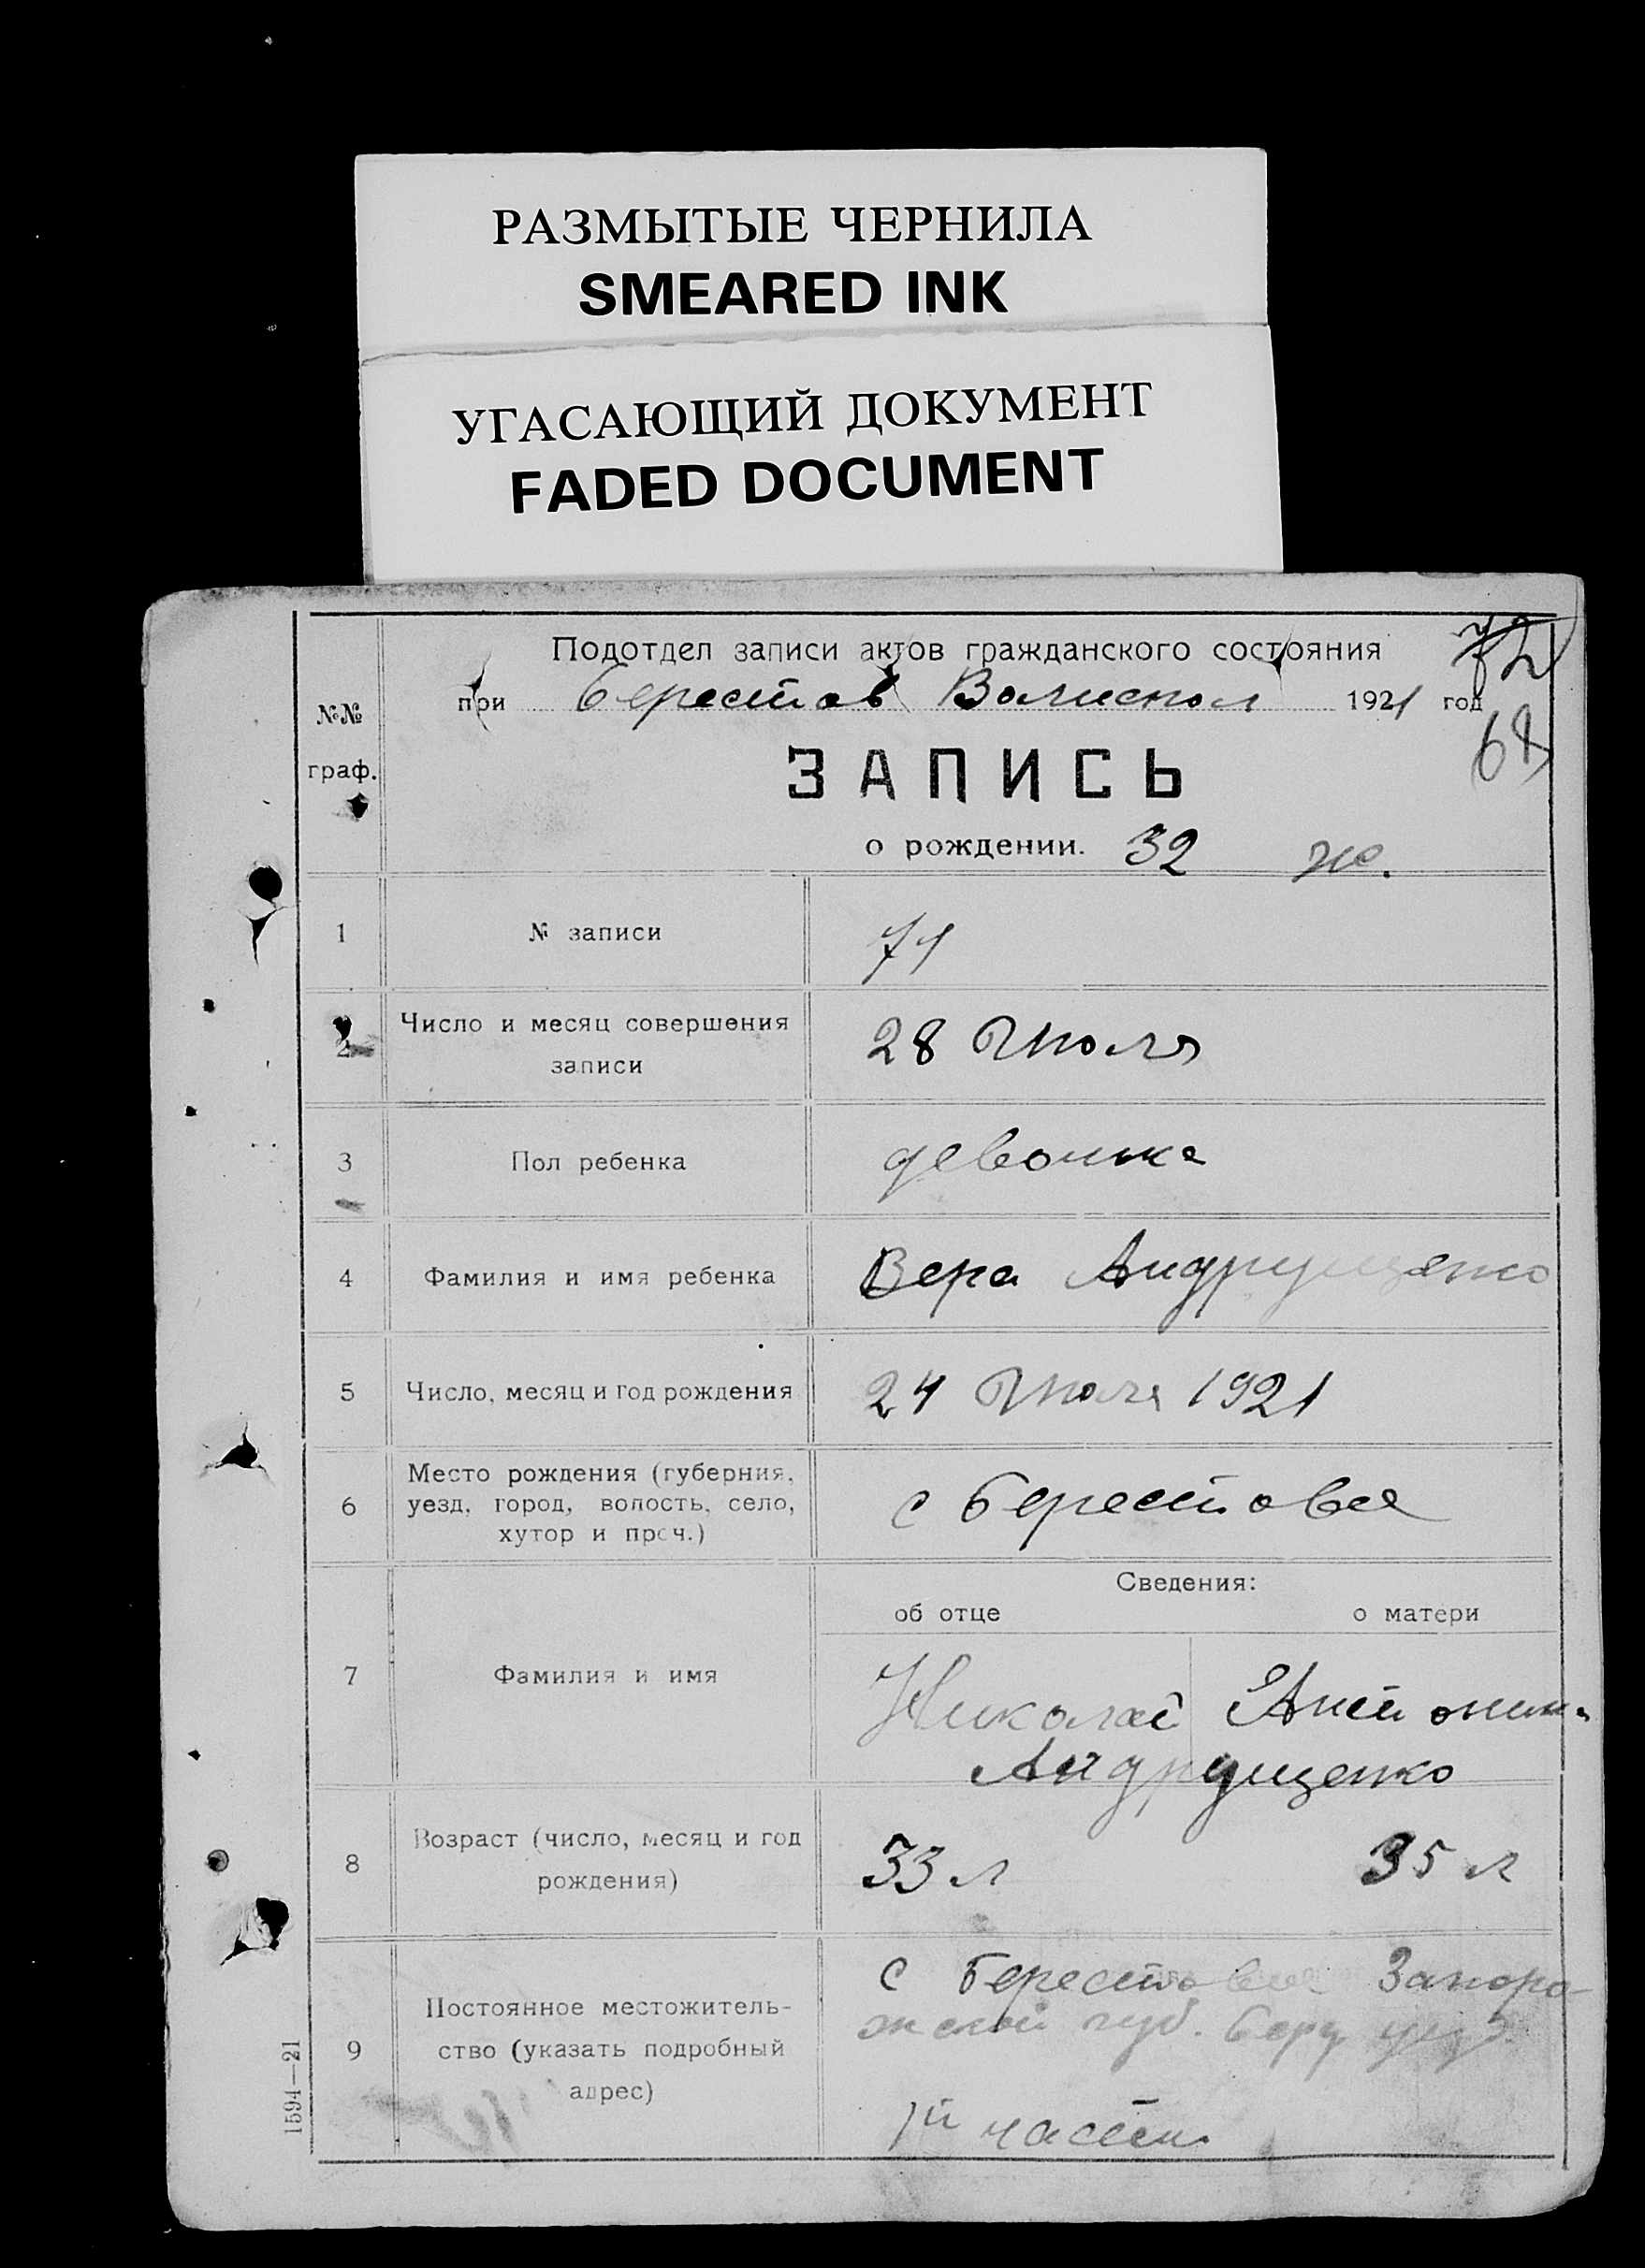 РАЗМЫТЫЕ ЧЕРНИЛА
SMEARED INK
УГАСАЮЩИЙ ДОКУМЕНТ
FADED DOCUMENT
Подотдел записи актов гражданского состояния
72
при Берестов Волиспол 1921 год
68
№№
граф.
ЗАПИСЬ
о рождении. 32 ж.
1 № записи 71
2 Число и месяц совершения
записи
28 Июля
3 Пол ребенка девочка
4 Фамилия и имя ребенка Вера Андрущенко
5 Число, месяц и год рождения 24 Июля 1921
6 Место рождения (губерния,
уезд, город, волость, село,
хутор и проч.)
с Берестовое
Сведения:
об отце о матери
7 Фамилия и имя Николай Антонина
Андрущенко
8 Возраст (число, месяц и год
рождения)
33 л 35 л
9 Постоянное местожитель-
ство (указать подробный
адрес)
с Берестовое Запоро-
жской губ. Берд уезд
1й части
1594—21